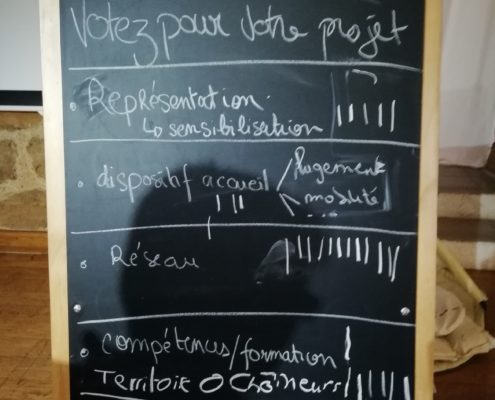 Votez pour votre projet
• Représentation
↳ sensibilisation
• dispositif accueil
logement
modalité
• Réseau
• compétences/formation
Territoire O Chômeurs